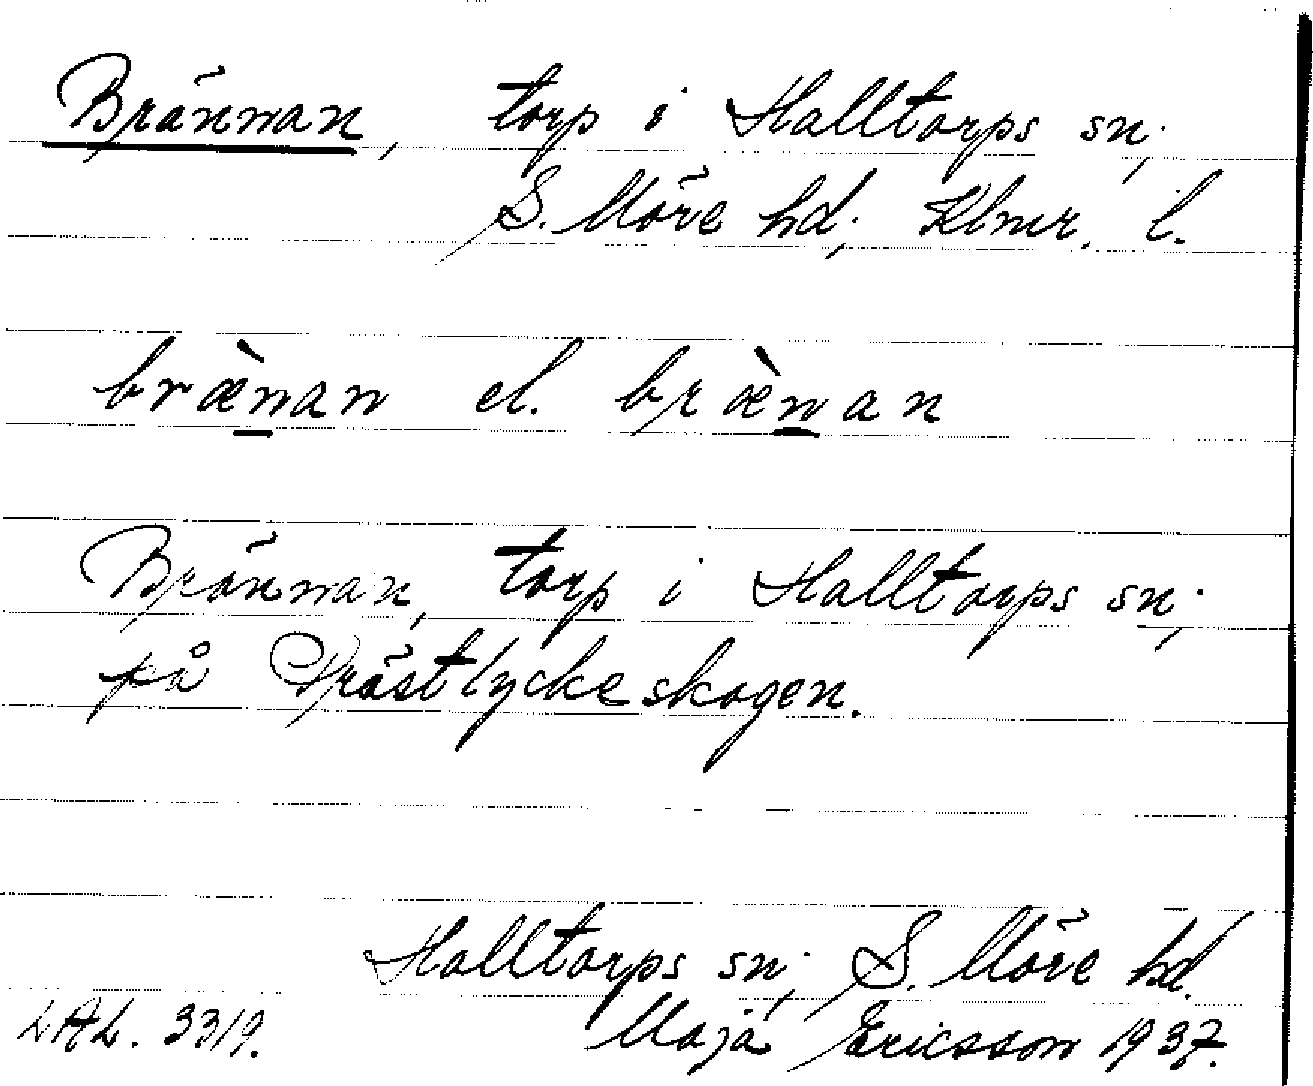 Brännan, torp i Halltorps sn;
S. Möre hd; Klmr. l.
bræ̀n̲an el. bræ̀n̲an
Brännan, torp i Halltorps sn;
på Prästlyckeskogen.
Halltorps sn; S. Möre hd.
LAL. 3319. Maja Ericsson 1937.